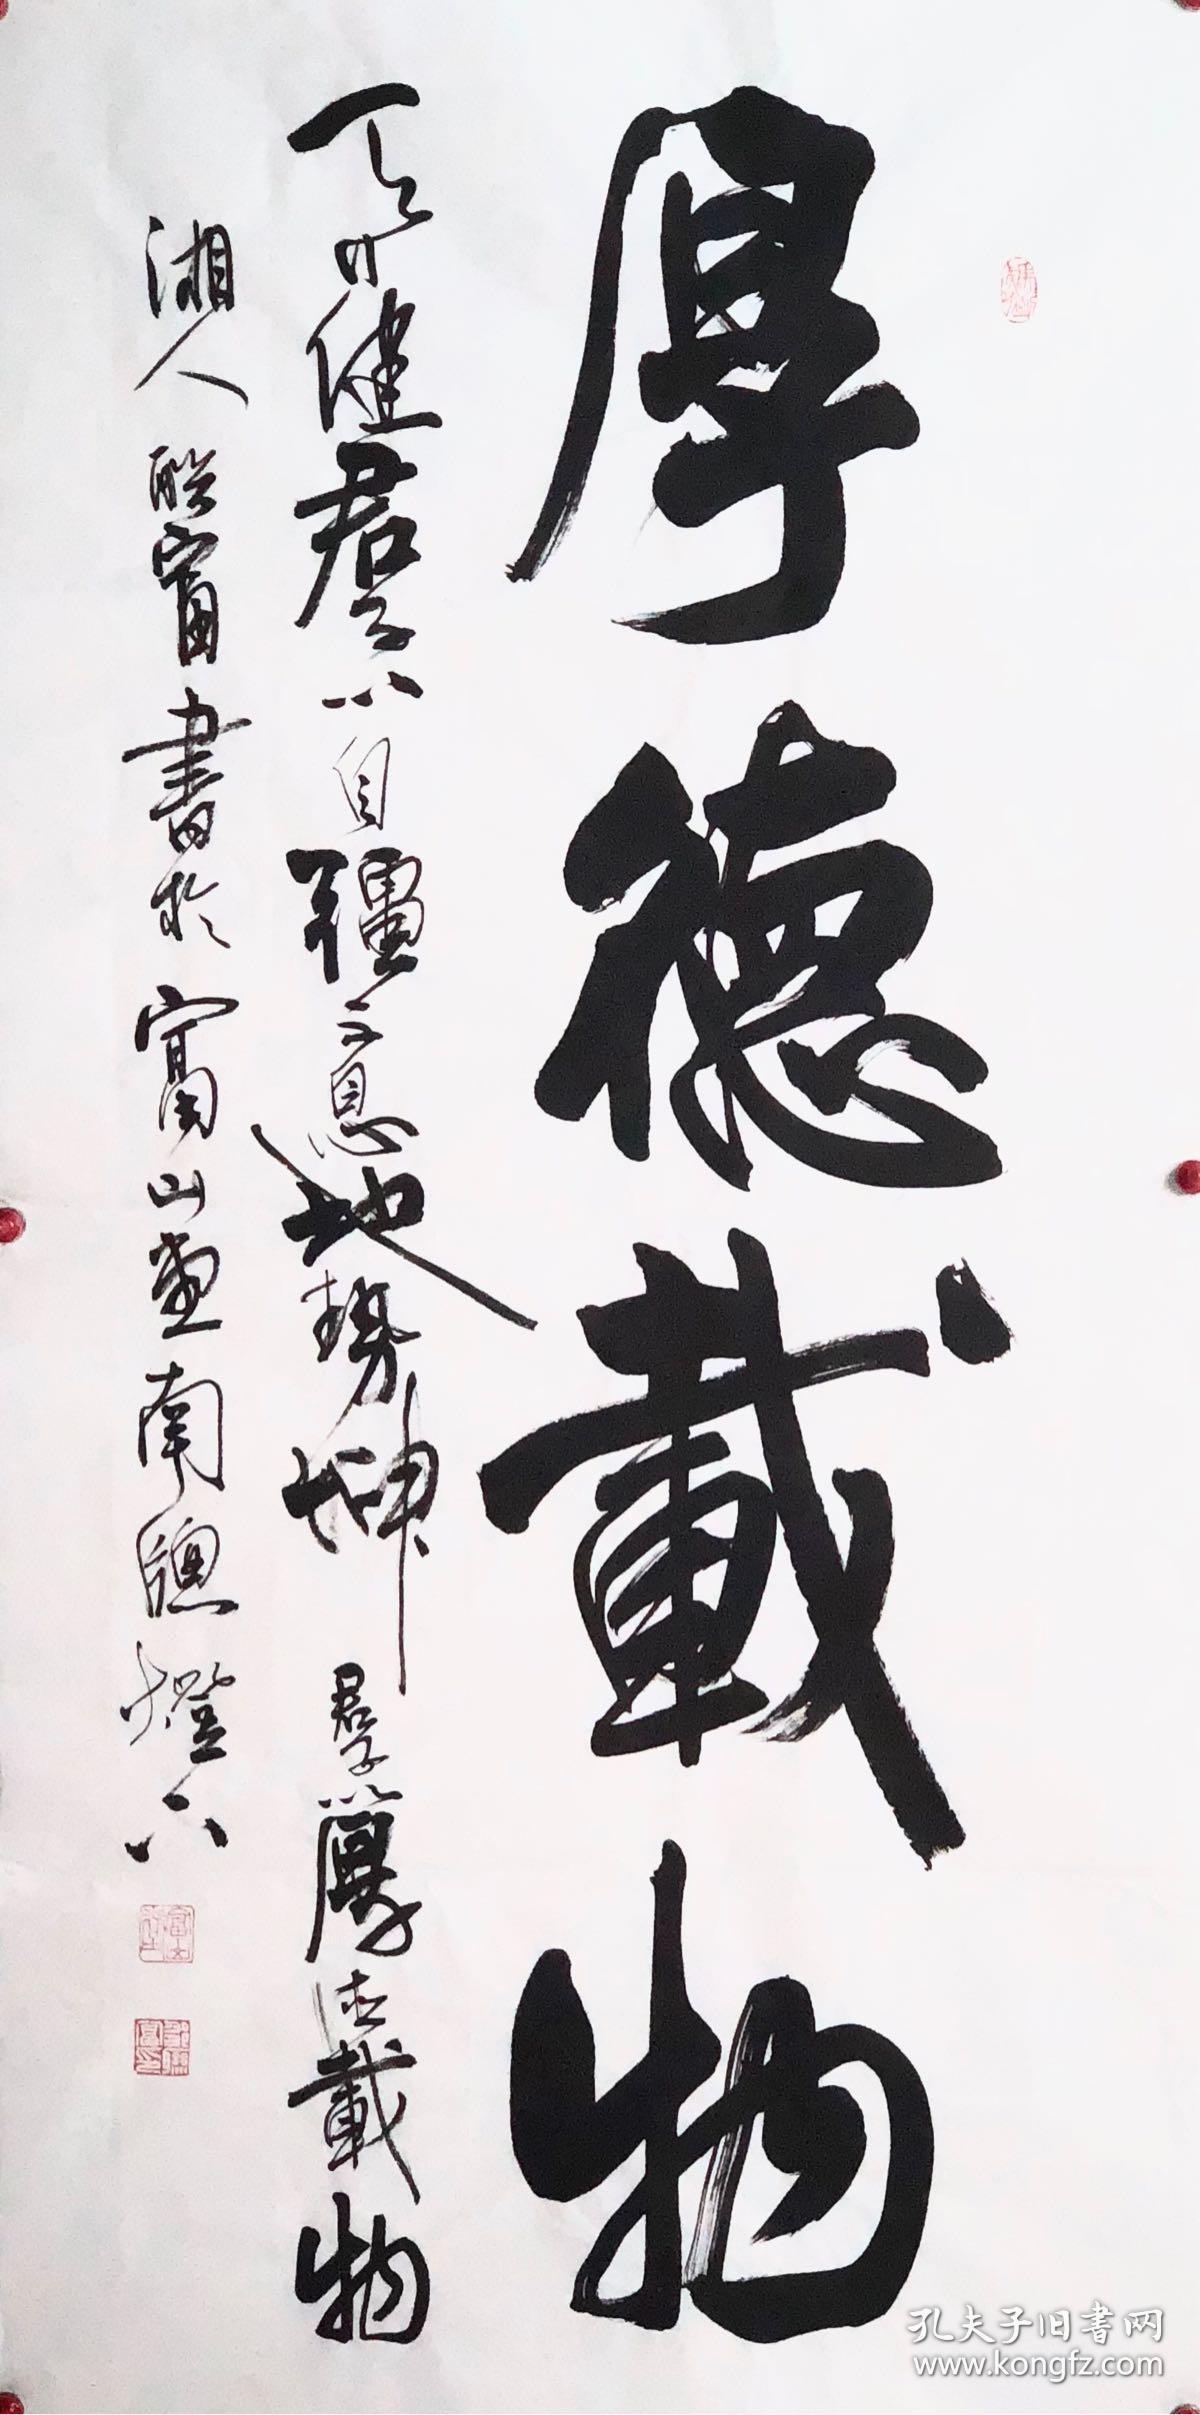 厚德載物
天行健君子以自彊不息地勢坤君子以厚德載物
湘人聯富書於富山堂南窗燈下
孔夫子旧书网
www.kongfz.com